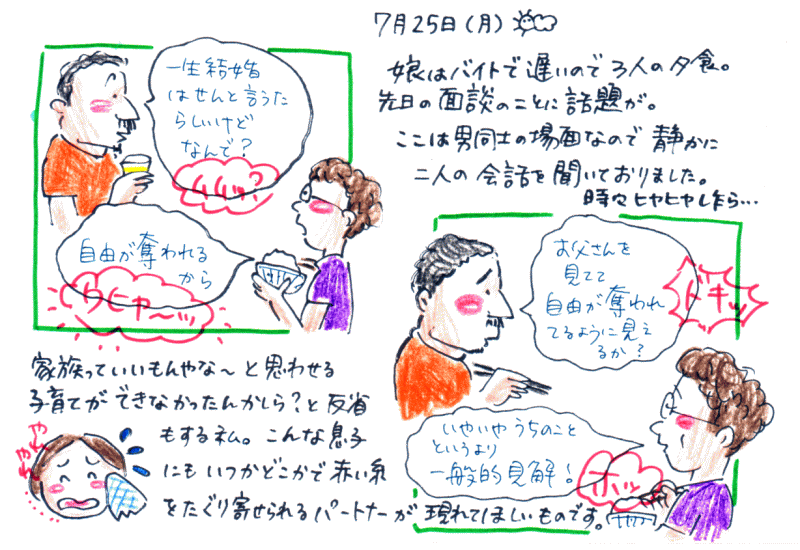 7月25日（月）
娘はバイトで遅いので3人の夕食。
先日の面談のことに話題が。
ここは男同士の場面なので静かに
二人の会話を聞いておりました。
時々ヒヤヒヤしながら…
一生結婚
はせんと言うた
らしいけど
なんで？
自由が奪われる
から
ぐわにゃ〜ッ
お父さんを
見てて
自由が奪われ
てるように見え
るか？
ドキッ
いやいやうちのこと
というより
一般的見解！
ホッ
家族っていいもんやな〜と思わせる
子育てができなかったんかしら？と反省
もする私。こんな息子
にもいつかどこかで赤い糸
をたぐり寄せられるパートナーが現れてほしいものです。